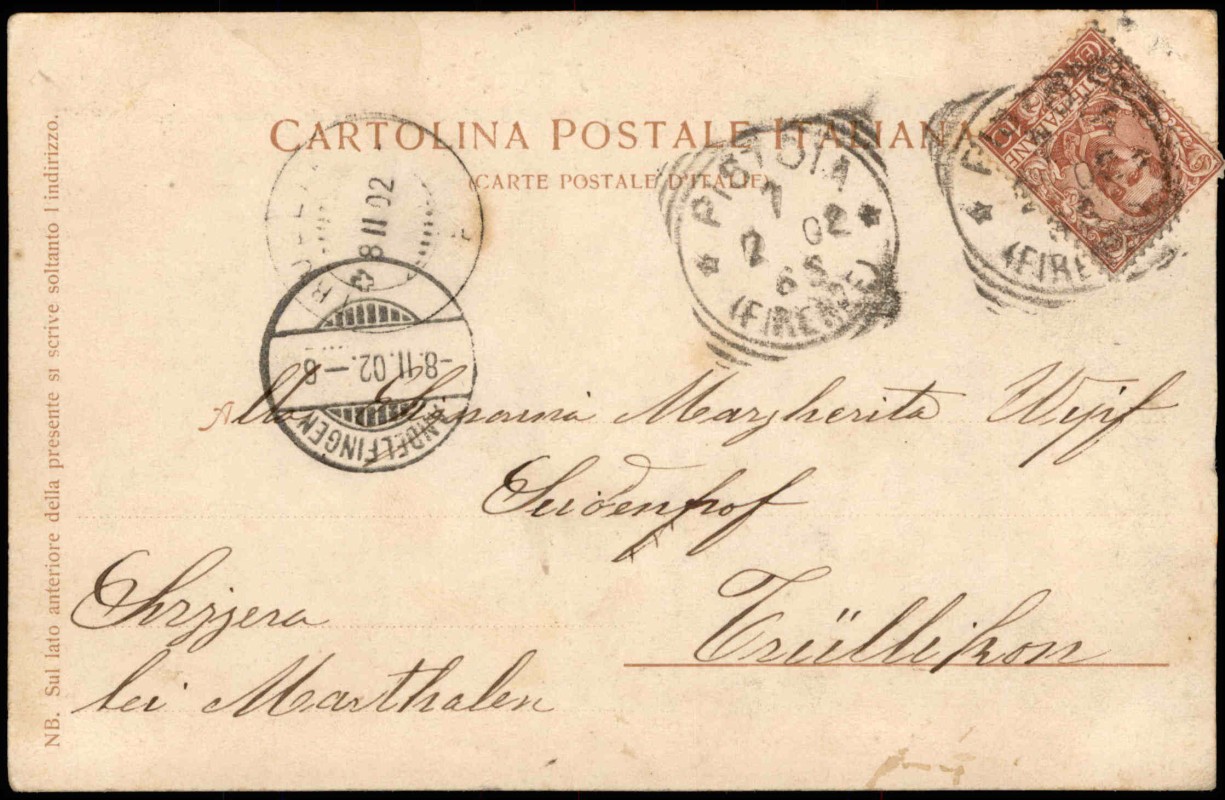 CARTOLINA POSTALE ITALIANA
(CARTE POSTALE D'ITALIE)
PISTOIA
7 2 02
6 S
(FIRENZE)
8 II 02
-8.II.02.-8
ANDELFINGEN
Alla Signorina Margherita Wipf
Seidenhof
Trüllikon
Svizzera
bei Marthalen
NB. Sul lato anteriore della presente si scrive soltanto l'indirizzo.
(FIRE